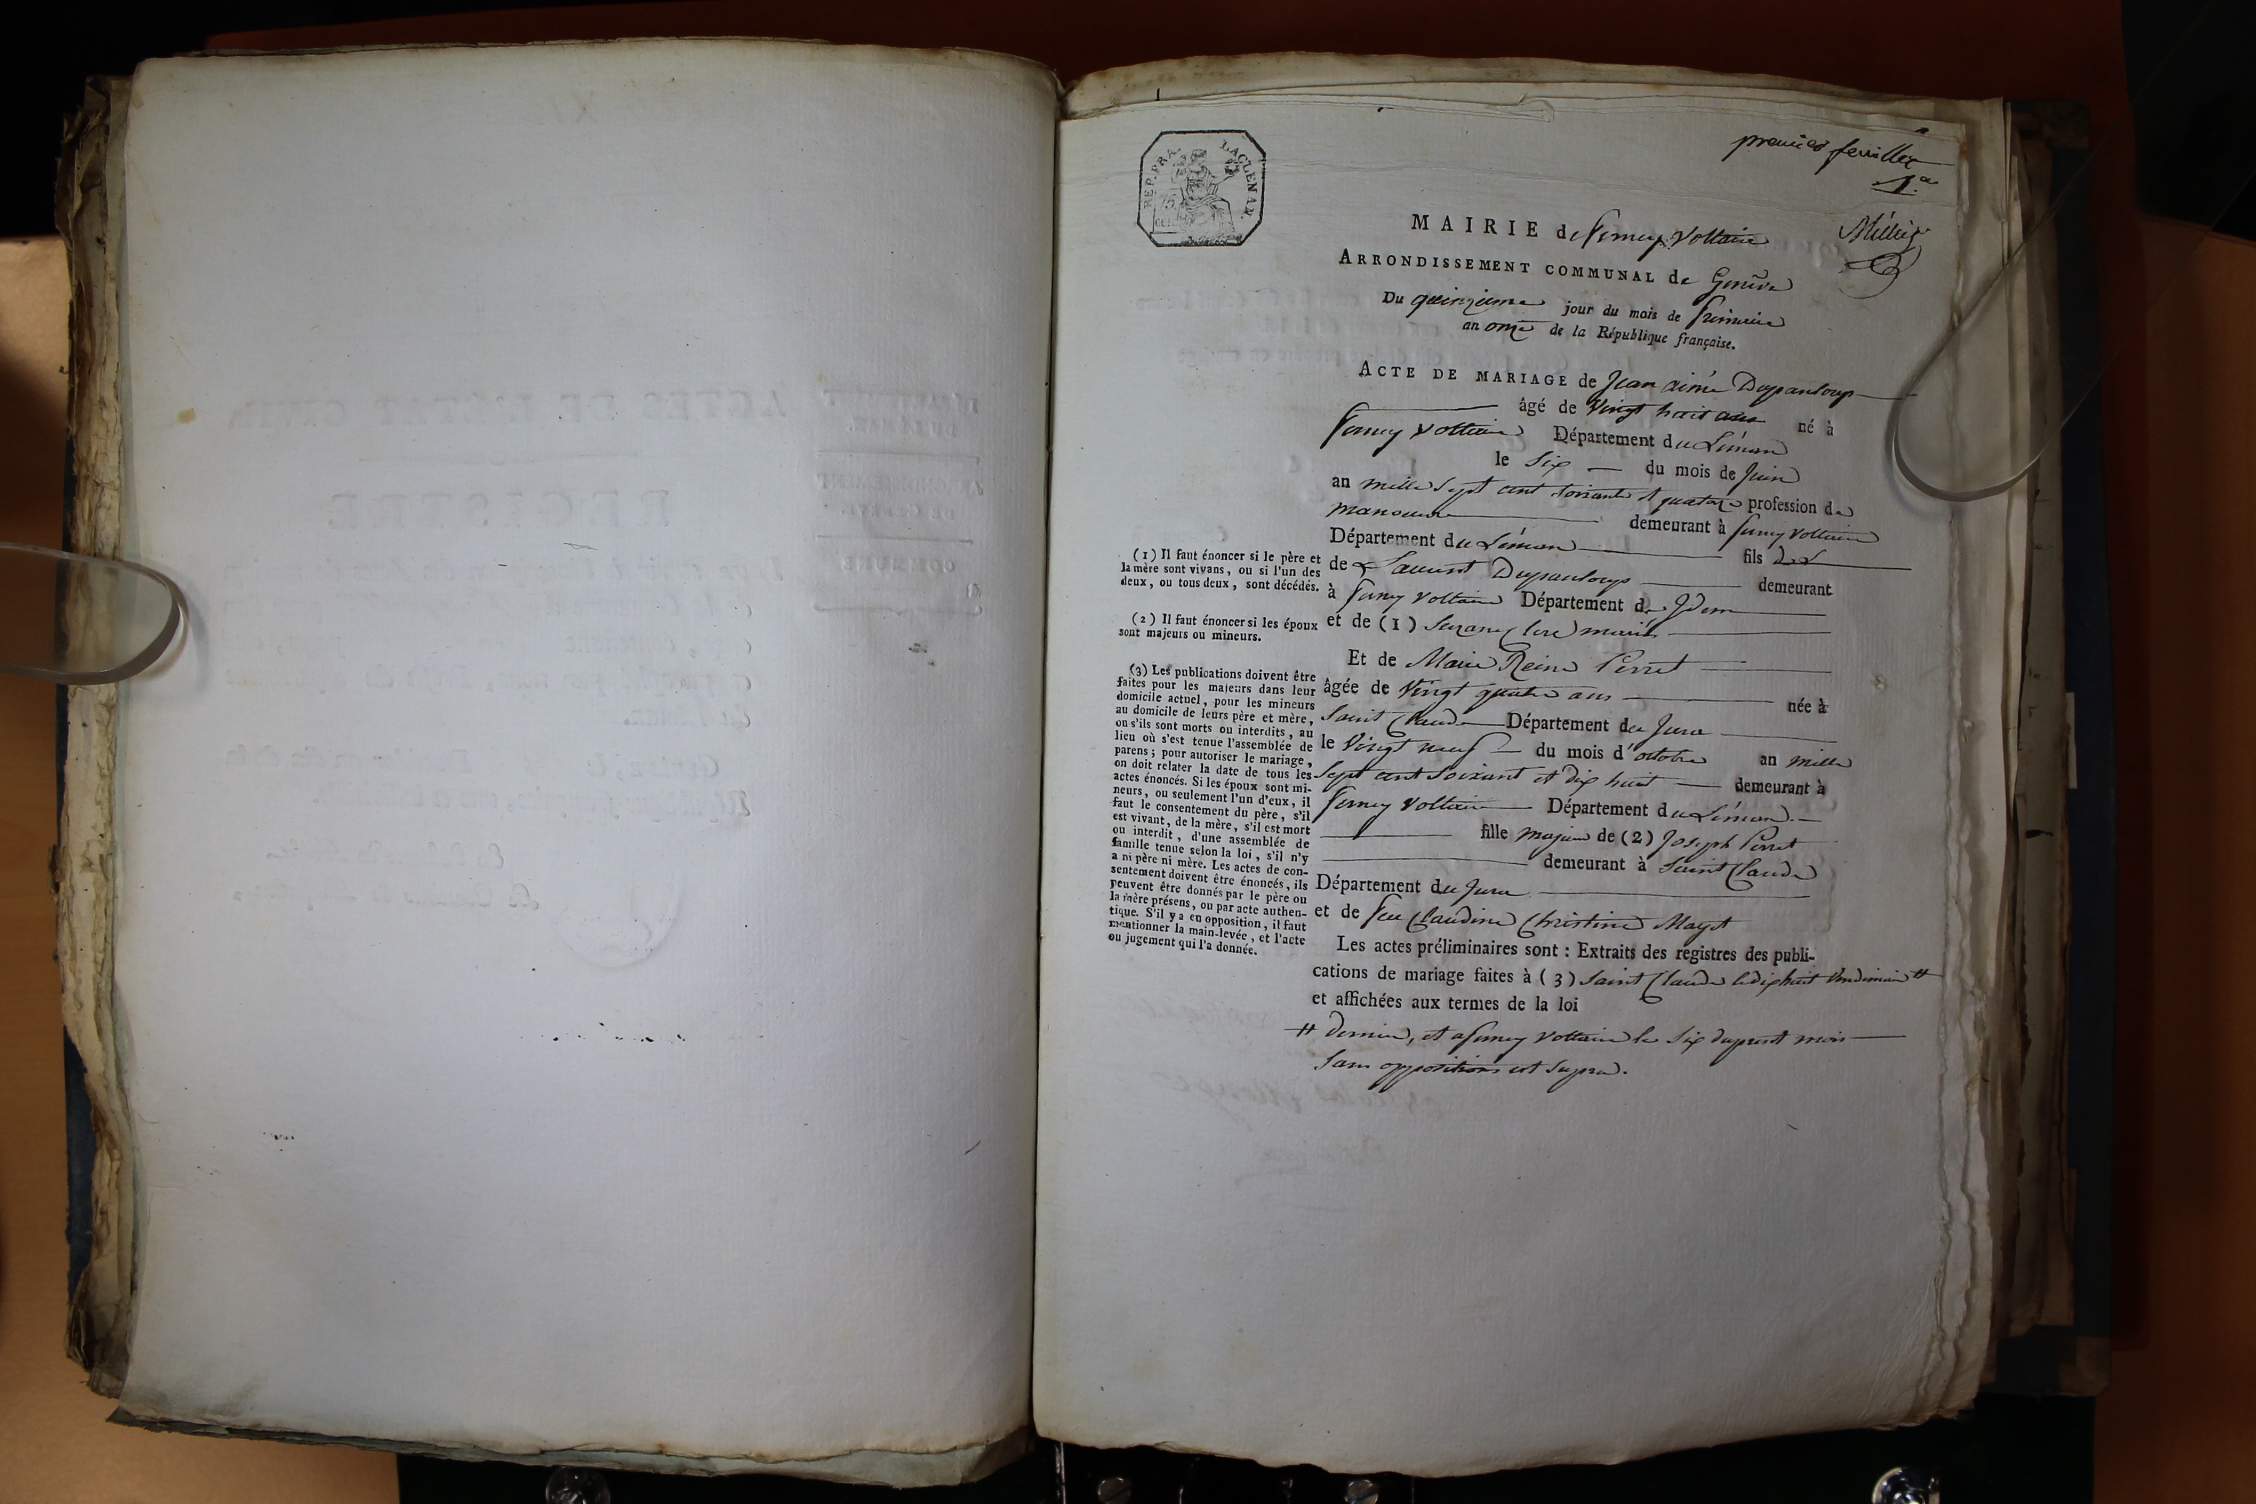 premier feuillet
1.er
REP. FRA. LAC LEMAN.
75
CEN
MAIRIE de Ferney Voltaire
ARRONDISSEMENT COMMUNAL de Genêve
Du quinzieme jour du mois de frimaire
an onze de la République française.
ACTE DE MARIAGE de Jean aimé Dupanloup
âgé de Vingt huit ans né à
ferney Voltaire Département du Léman
le Six du mois de Juin
an mille Sept cent Soixante et quatorze profession de
manoeuvre demeurant à ferney Voltaire
Département du Léman fils de
de Laurent Dupanloup demeurant
à ferney Voltaire Département de Idem
et de (1) Suzane Clere mariés
Et de Marie Reine Perret
âgée de Vingt quatre ans née à
Saint Claude Département du Jura
le Vingt neuf du mois d'octobre an mille
Sept cent Soixant et dix huit demeurant à
ferney Voltaire Département du Léman.
fille majeure de (2) Joseph Perret
demeurant à Saint Claude
Département du Jura
et de feu Claudine Christine Mayet
Les actes préliminaires sont : Extraits des registres des publi-
cations de mariage faites à (3) Saint Claude le dixhuit Vendimiaire #
et affichées aux termes de la loi
# dernier, et a ferney Voltaire le Six du present mois
Sans oppositions ut Supra.
(1) Il faut énoncer si le père et
la mère sont vivans, ou si l'un des
deux, ou tous deux, sont décédés.
(2) Il faut énoncer si les époux
sont majeurs ou mineurs.
(3) Les publications doivent être
faites pour les majeurs dans leur
domicile actuel, pour les mineurs
au domicile de leurs père et mère,
ou s'ils sont morts ou interdits, au
lieu où s'est tenue l'assemblée de
parens ; pour autoriser le mariage,
on doit relater la date de tous les
actes énoncés. Si les époux sont mi-
neurs, ou seulement l'un d'eux, il
faut le consentement du père, s'il
est vivant, de la mère, s'il est mort
ou interdit, d'une assemblée de
famille tenue selon la loi, s'il n'y
a ni père ni mère. Les actes de con-
sentement doivent être énoncés, ils
peuvent être donnés par le père ou
la mère présens, ou par acte authen-
tique. S'il y a eu opposition, il faut
mentionner la main-levée, et l'acte
ou jugement qui l'a donnée.